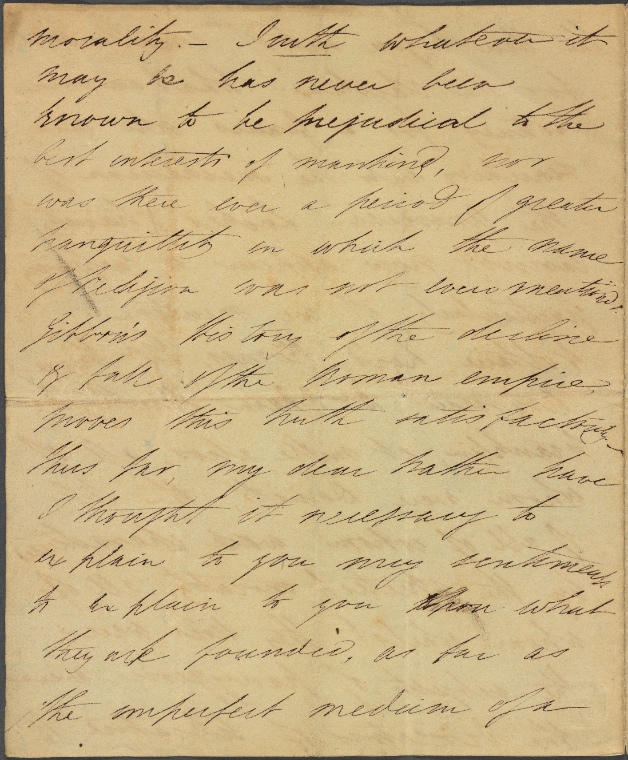 morality. — Truth whatever it
may be has never been
known to be prejudical to the
best interests of mankind, nor
was there ever a period of greater
tranquillity in which the name
of religion was not even mentioned.
Gibbon's History of the decline
& fall of the Roman empire,
proves this truth satisfactorily
thus far, my dear Father have
I thought it necessary to
explain to you my sentiments
to explain to you upon what
they are founded, as far as
the imperfect medium of a